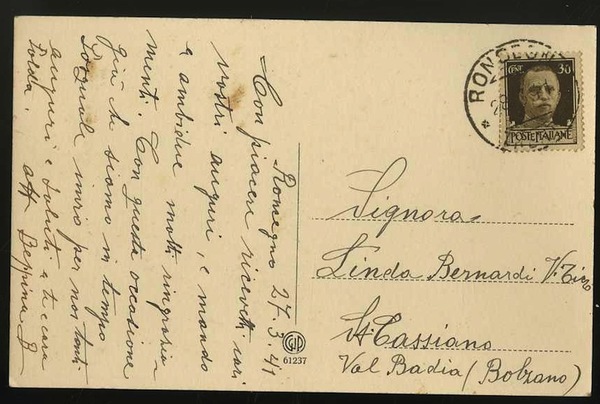 Romegno 27-3-41
Con piacere ricevetti cari
vostri auguri, e mando
a ambidue molti ringrazia-
menti. Con questa occasione
giù di siamo in tempo
Pasquale invio per noi tanti
auguri e saluti a te cara
Zolda. aff Beppina B
RONSEGNO
CENT 30
POSTE ITALIANE
Signora
Linda Bernardi V. Tizo
St Cassiano
Val Badia (Bolzano)
GIP
61237